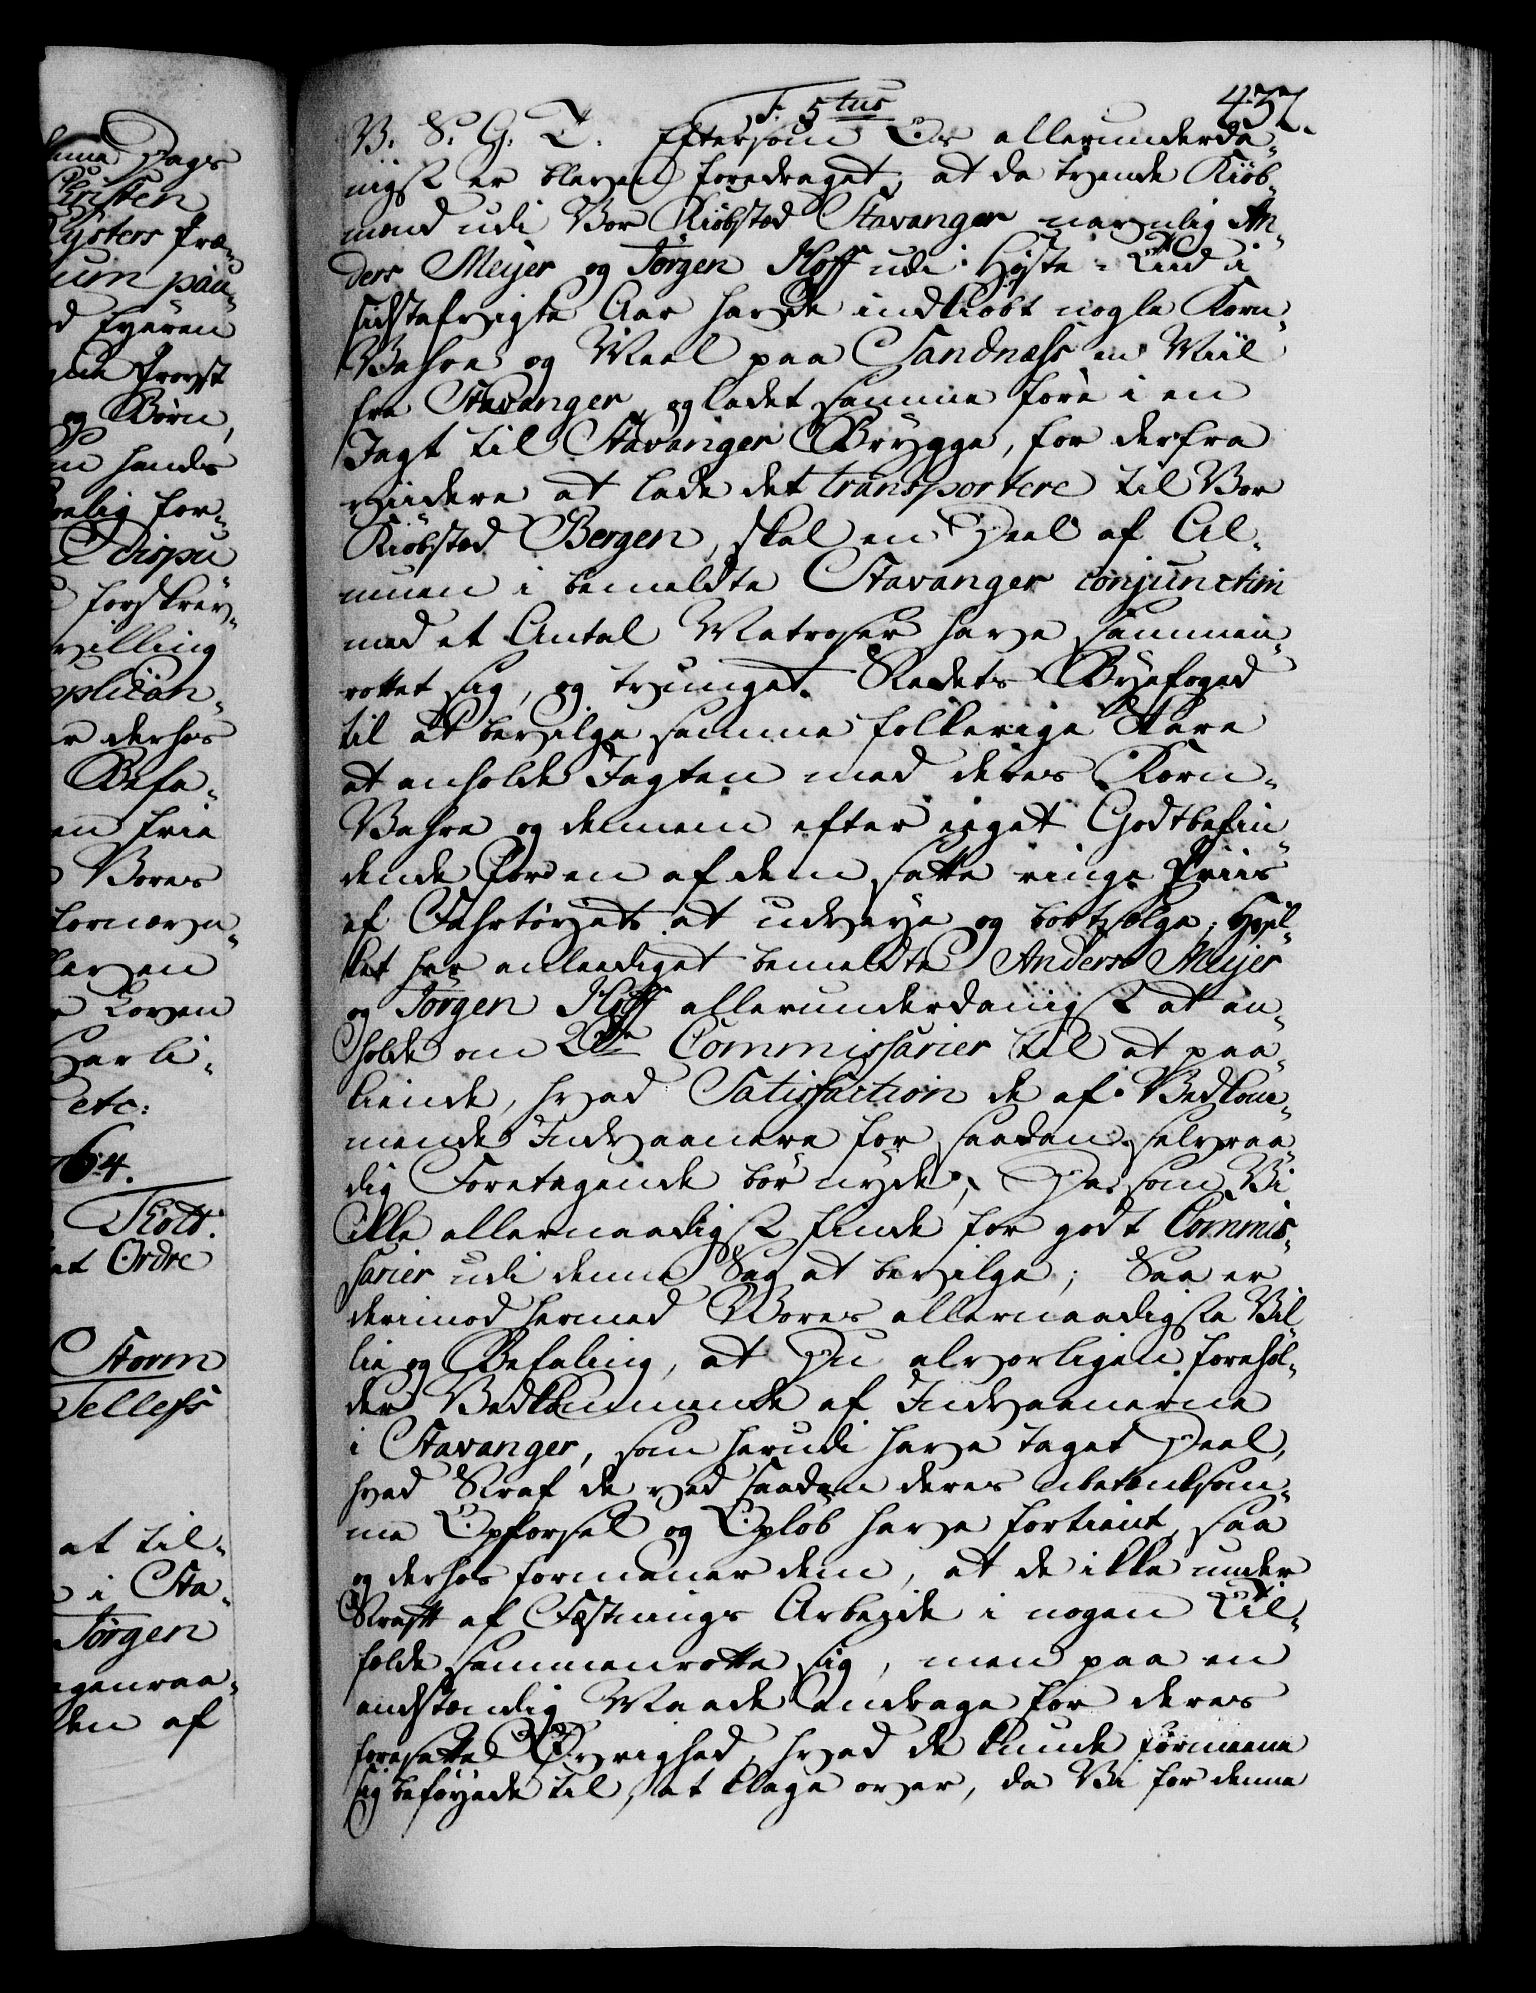 F. 5tus
437.
V. S. G. T. Eftersom Os allerunderda„
nigst er bleven foredraget, at da tvende Kiøb„
mænd udi Vor Kiøbstæd Stavanger navnlig An„
ders Meijer og Jørgen Hoff udi Høste-Tiid i
sidstafvigte Aar havde indkiøbt nogle Korn-
Vahre og Meel paa Sandnæss en Miil
fra Stavanger og ladet samme føre i en
Jagt til Stavanger Brygge, for derfra
viidere at lade det transportere til Vor
Kiøbstæd Bergen, skal en Deel af Al„
muen i bemeldte Stavanger conjunctim
med et Antal Matroser have sammen„
rottet sig, og tvunget Stedets Byefoged
til at bevilge samme folkerige Skare
at anholde Jagten med deres Korn-
Vahre og dennem efter eeget Godtbefin„
dende for en af dem satte ringe Priis
af Fahrtøyet at udveye og bortsælge; Hvil„
ket har anleediget bemeldte Anders Meijer
og Jørgen Hoff allerunderdanigst at an„
holde om 2de Commissarier til at paa„
kiende, hvad Satisfaction de af Vedkom„
mende Indvaanere for saadan selvraa„
dig Foretagende bør nyde; Da som Vi
ikke allernaadigst finde for godt Commis„
sarier udi denne Sag at bevilge; Saa er
derimod hermed Vores allernaadigste Vil„
lie og Befaling, at Du alvorligen forehol„
der Vedkommende af Indvaanerne
i Stavanger, som herudi have taget Deel,
hvad Straf de ved saadan deres ubetænksom„
me Opførsel og Opløb have fortient, saa
og derhos formaner dem, at de ikke under
Straff af Fæstnings Arbeyde i nogen Til„
fælde sammenrotte sig, men paa en
anstændig Maade andrage for deres
foresatte Øvrighed, hvad de kunde formeene
sig beføyede til, at klage over, da Vi for denne